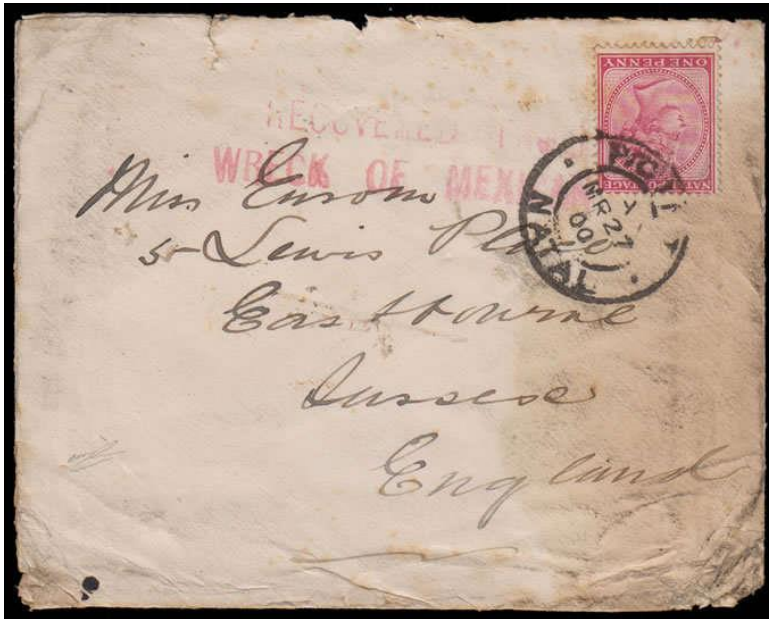 ONE PENNY
NATAL POSTAGE
RECOVERED FROM
WRECK OF MEXICAN
NATAL
MR 27
00
Miss
5 Lewis
Eastbourne
Sussex
England